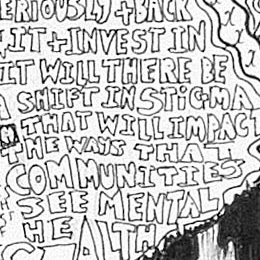 ERIOUSLY + BACK
IT + INVEST IN
IT WILL THERE BE
A SHIFT IN STIGMA
THAT WILL IMPACT
THE WAYS THAT
COMMUNITIES
SEE MENTAL
HEALTH